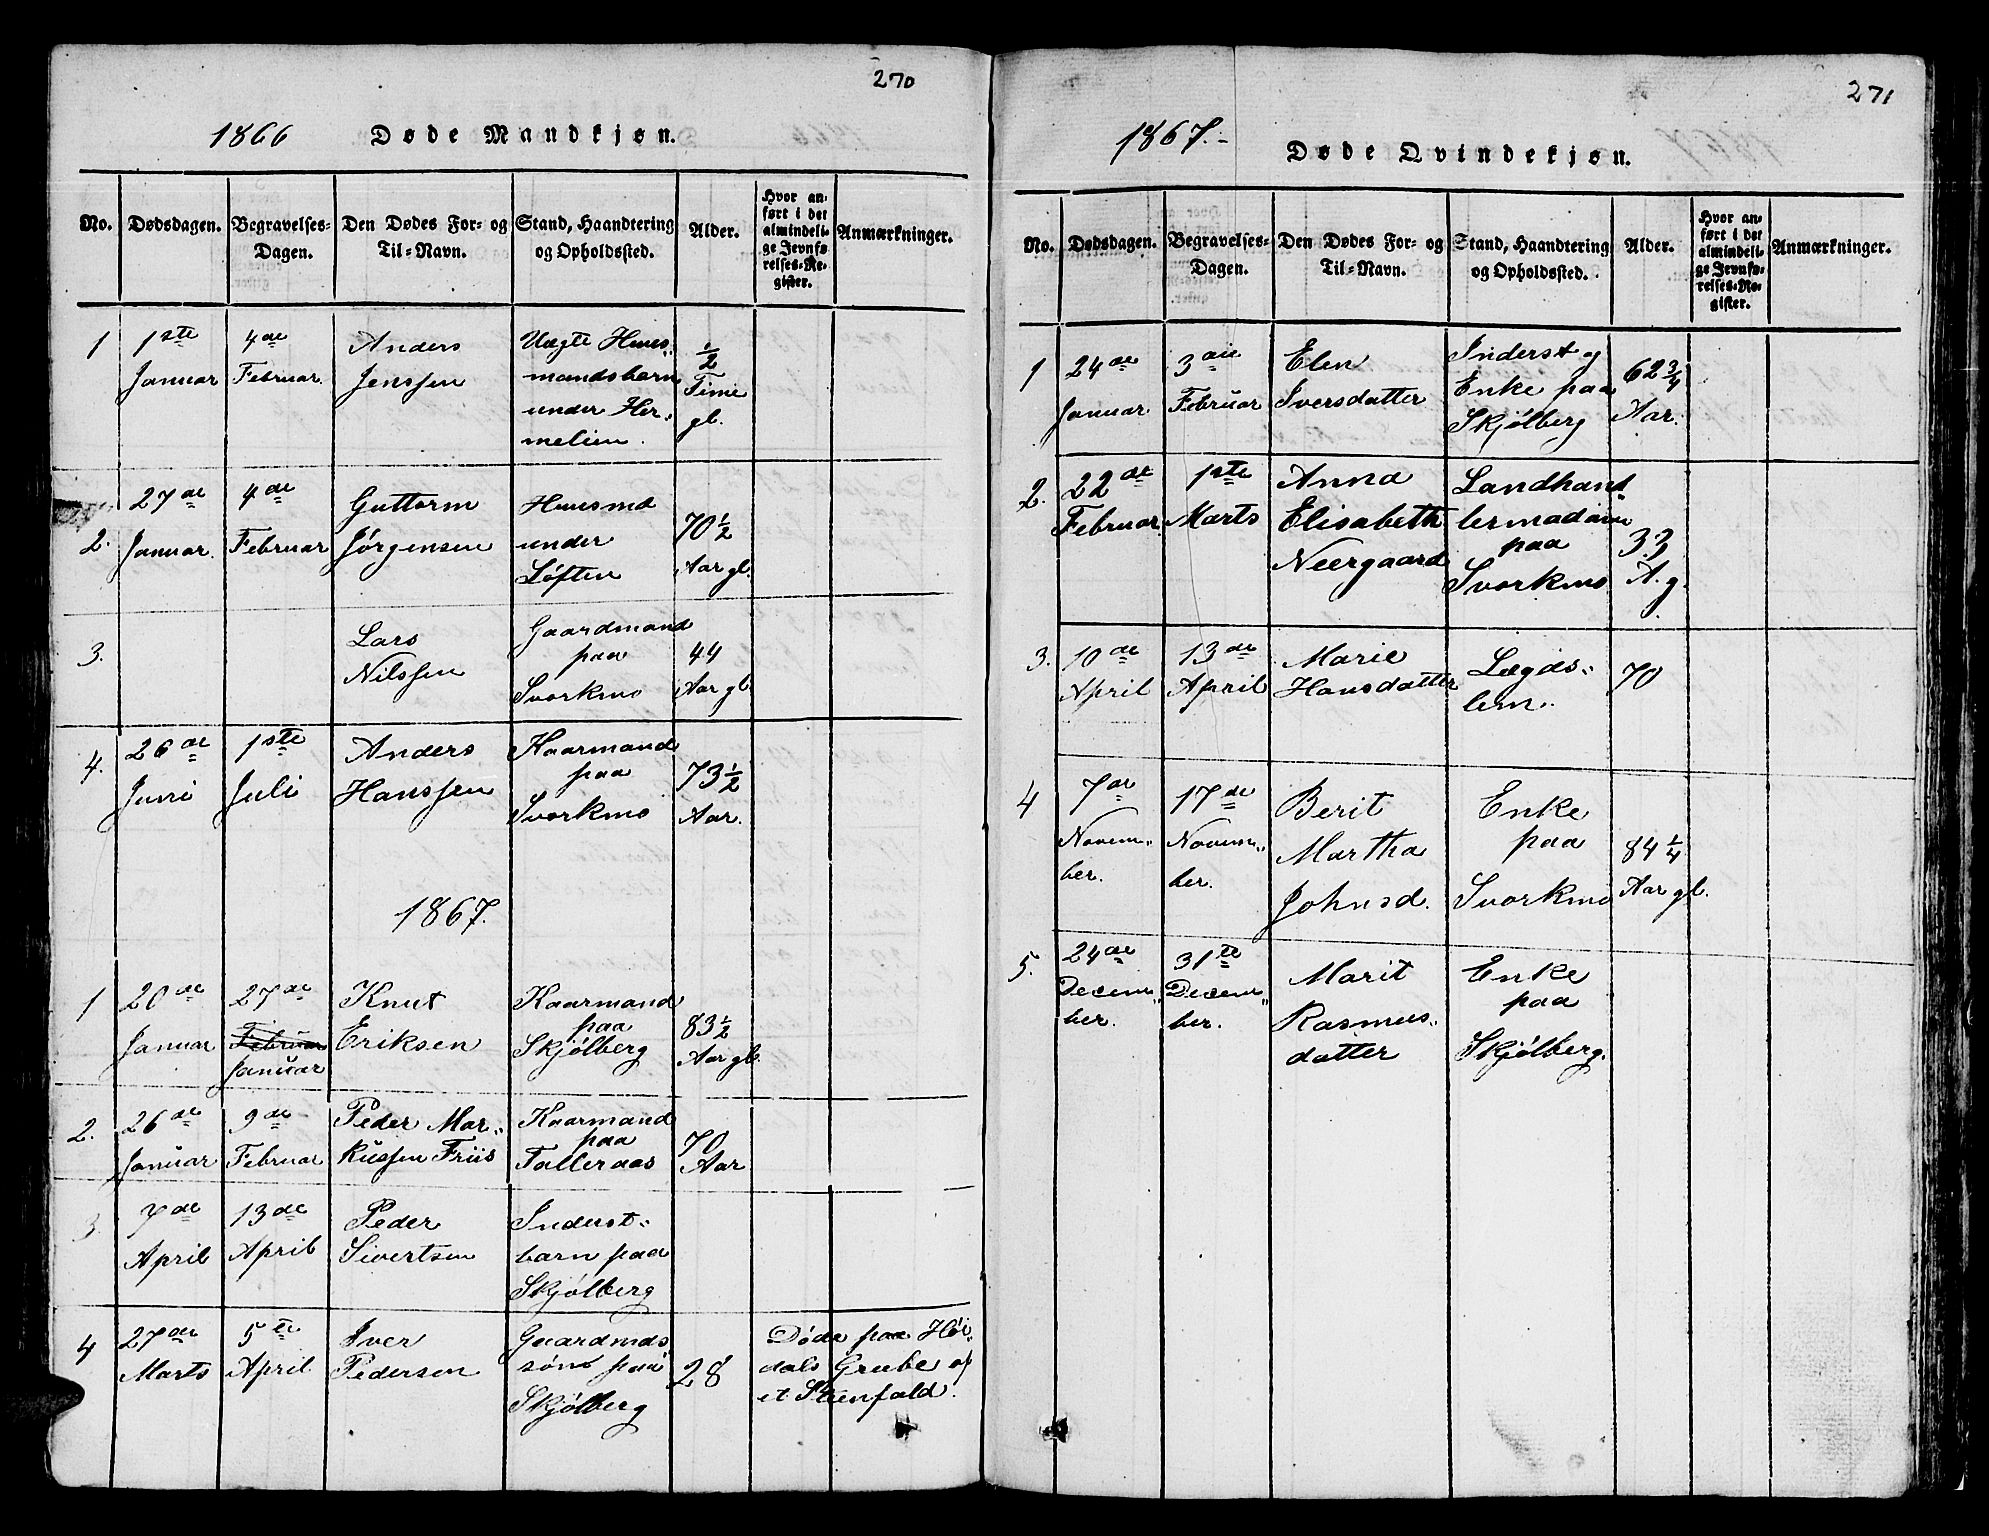 270
1866 Døde Mandkjøn.
No. Dødsdagen. Begravelses-Dagen. Den Dødes For- og Til-Navn. Stand, Haandtering og Opholdssted. Alder. Hvor anført i det almindelige Jevnførelses-Register. Anmærkninger.
1 1ste 4de Anders Uægte Huus-
Januar Februar Jenssen mandsbarn ½ Time
under Her- gl.
melien.
2. 27de 4de Guttorm Huusmd
Januar. Februar Jørgensen under 70½
Løften Aar gl.
3. Lars Gaardmand
Nilssen paa 44
Svorkmo Aar gl.
4. 26de 1ste Anders Kaarmand
Juni Juli Hanssen paa 73½
Svorkmo Aar.
1867.
1 20de 27de Knut Kaarmand
Januar Februar Eriksen paa 83½
Januar Skjølberg Aar gl.
2. 26de 9de Peder Mar- Kaarmand
Januar Februar kussen Friis paa 70
Solleraas Aar
3 7de 13de Peder Inderst-
April April Sivertsen barn paa
Skjølberg
4 27de 5te Iver Gaardmds Døde paa Høi-
Marts April Pedersen søn paa 28 dals Grube af
Skjølberg et Steenfald.
271
1867.- Døde Qvindekjøn.
No. Dødsdagen. Begravelses-Dagen. Den Dødes For- og Til-Navn. Stand, Haandtering og Opholdssted. Alder. Hvor anført i det almindelige Jevnførelses-Register. Anmærkninger.
1 24de 3die Elen Inderst og
Januar Februar Iversdatter Enke paa 62¾
Skjølberg Aar.
2. 22de 1ste Anna Landhand-
Februar Marts Elisabeth lermadam
Neergaard paa 33
Svorkmo A. g.
3. 10de 13de Marie Lægds-
April April Hansdatter lem. 70
4 7de 17de Berit Enke
Novem- Novem- Martha paa 84¼
ber. ber. Johnsd. Svorkmo Aar gl.
5. 24de 31te Marit Enke
Decem- Decem- Rasmus- paa
ber. ber. datter Skjølberg.